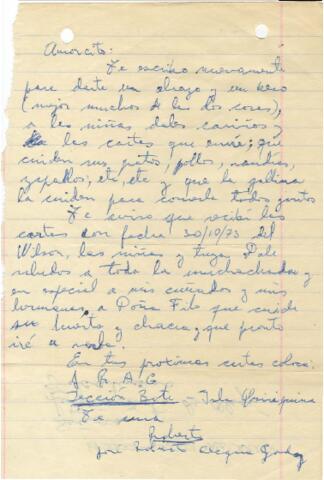 Amorcito:
Te escribo nuevamente
para darte un abrazo y un beso
(mejor muchos de las dos cosas),
a las niñas dales cariños y
las cartas que envié; que
cuiden sus gatos, pollos,
zapallos, etc, etc y que la gallina
la cuiden para comerla todos juntos
Te aviso que recibí las
cartas con fecha 30/10/73 del
Wilson, las niñas y tuya. Dale
saludos a toda la muchachada y
en especial a mis cuñados y mis
hermanas, a Doña Filo que cuide
su huerto y chacra, que pronto
iré a verla.
En tus próximas cartas coloca:
Sección Bote - Isla Quiriquina
Te ama
Roberto
José Roberto